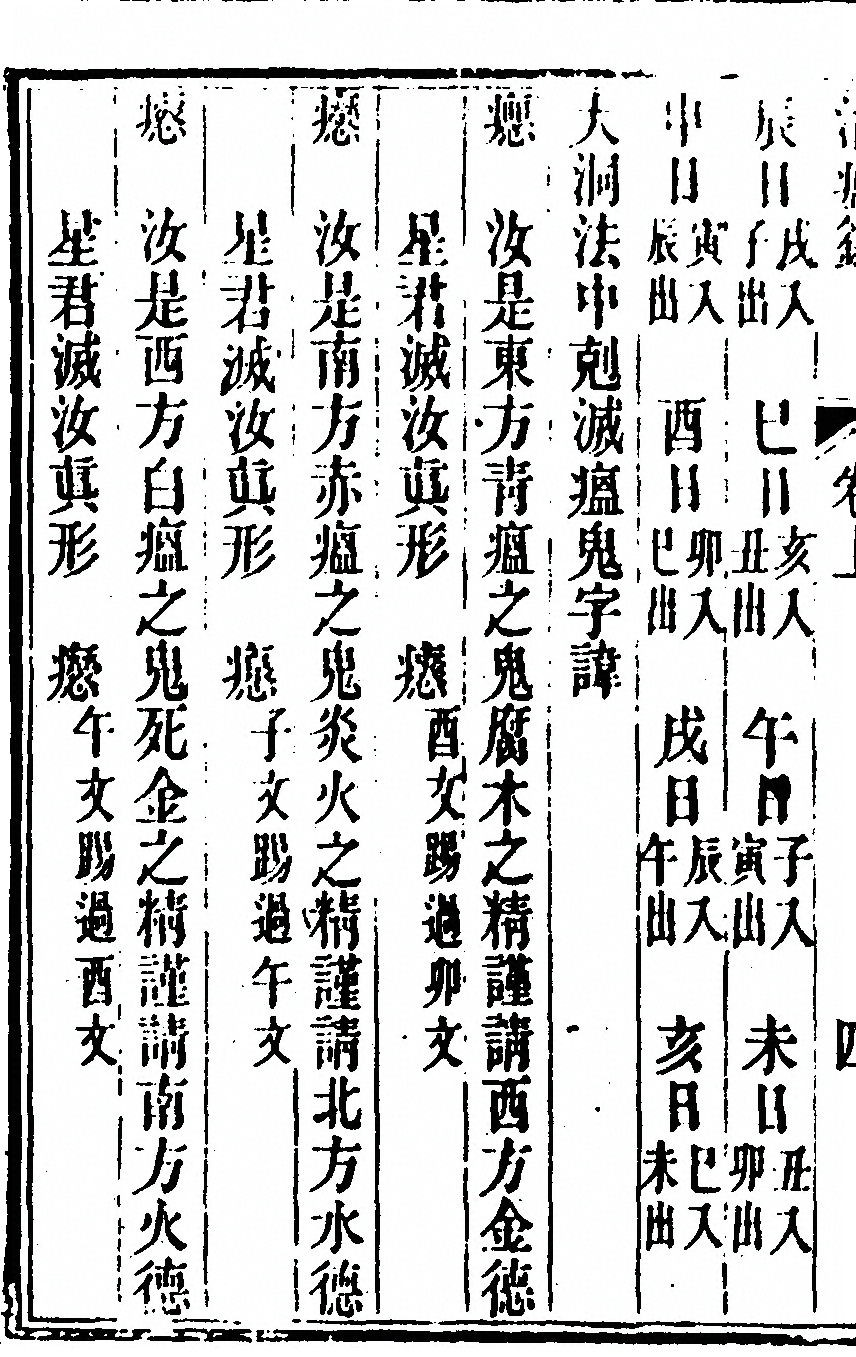 卷上 四
辰日戌入子出 巳日亥入丑出 午日子入寅出 未日丑入卯出
申日寅入辰出 酉日卯入巳出 戌日辰入午出 亥日巳入未出
大洞法中剋滅瘟鬼字諱
汝是東方青瘟之鬼腐木之精謹請西方金德
星君滅汝眞形 酉文踢過卯文
汝是南方赤瘟之鬼炎火之精謹請北方水德
星君滅汝眞形 子文踢過午文
汝是西方白瘟之鬼死金之精謹請南方火德
星君滅汝眞形 午文踢過酉文